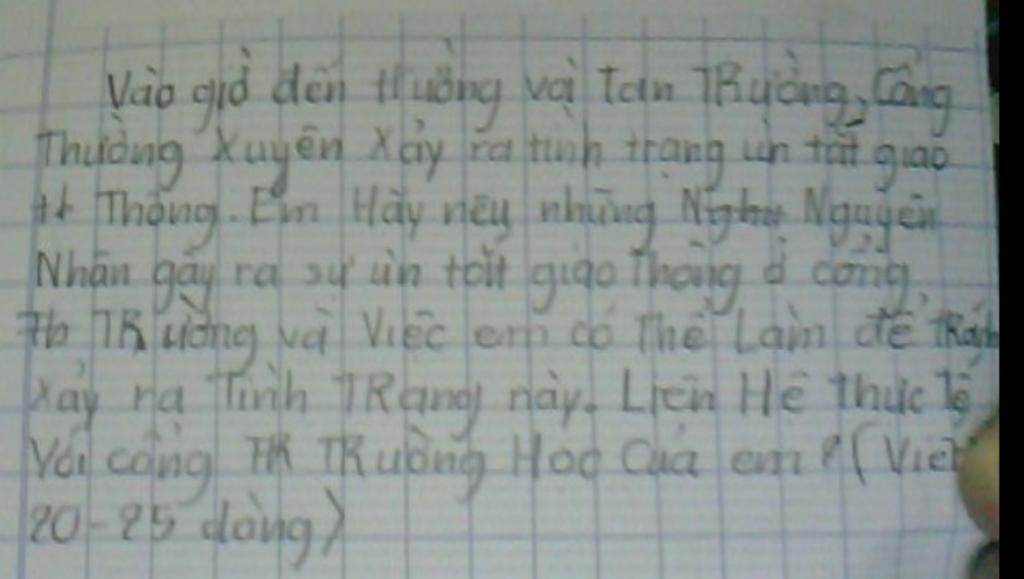 Vào giờ đến trường và Tan TRường, Cổng
Thường Xuyên Xảy ra tình trạng ùn tắt giao
Thông. Em Hãy nêu những Nguyên
Nhân gây ra sự ùn tắt giao Thông ở cổng
TRường và Việc em có Thể Làm để tRánh
Xảy ra Tình TRạng này. Liên Hệ thực Tế
Với cổng TRường Học Của em? (Viết
20-25 dòng)